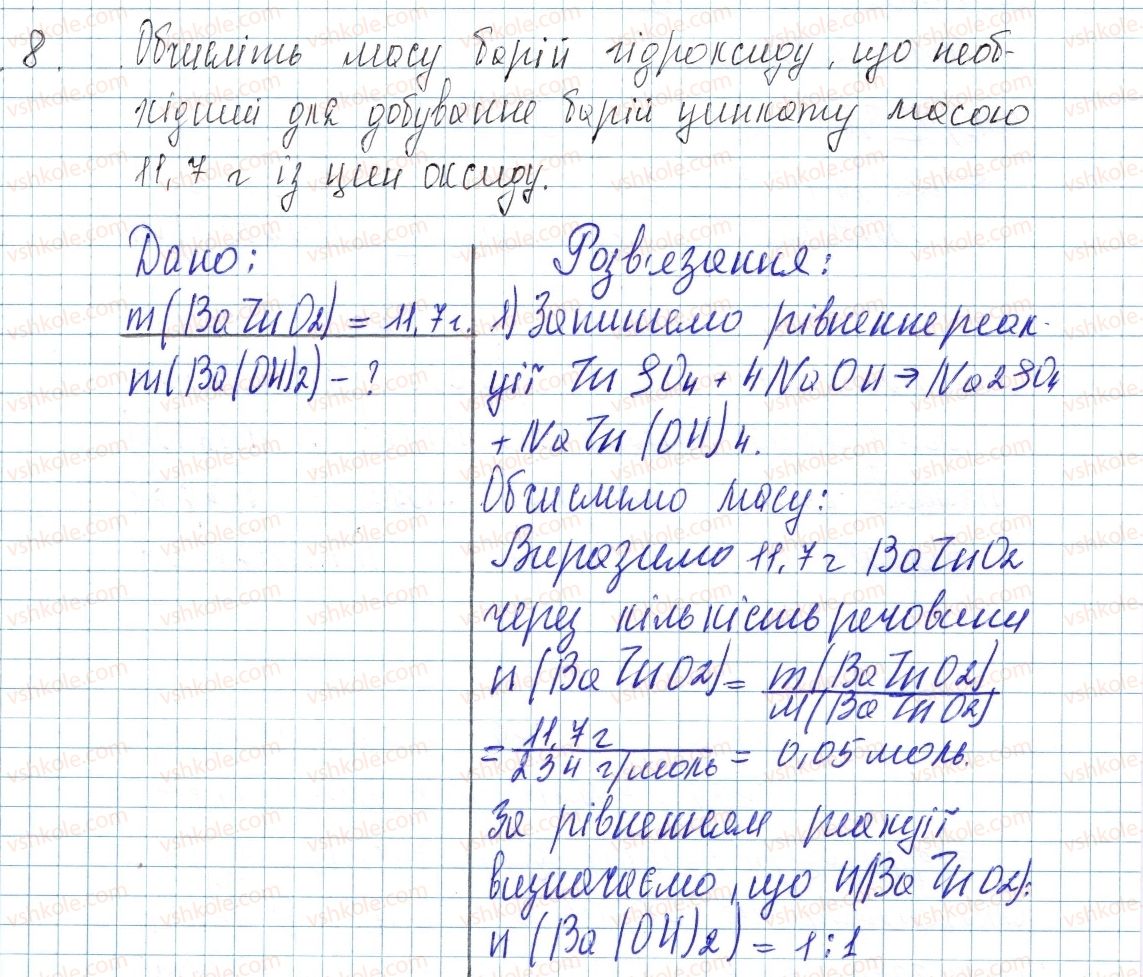 8. Обчисліть масу барій гідроксиду, що необ-
хідний для добування барій цинкату масою
11,7 г із цин оксиду.
Дано:
m(BaZnO2) = 11,7г.
m(Ba(OH)2) - ?
Розв'язання:
1) Запишемо рівняння реак-
ції ZnSO4 + 4NaOH → Na2SO4
+ NaZn(OH)4.
Обчислимо масу:
Виразимо 11,7 г BaZnO2
через кількість речовини
n(BaZnO2) = m(BaZnO2)
M(BaZnO2)
= 11,7 г
234 г/моль = 0,05 моль.
За рівнянням реакції
визначаємо, що n(BaZnO2):
n(Ba(OH)2) = 1:1